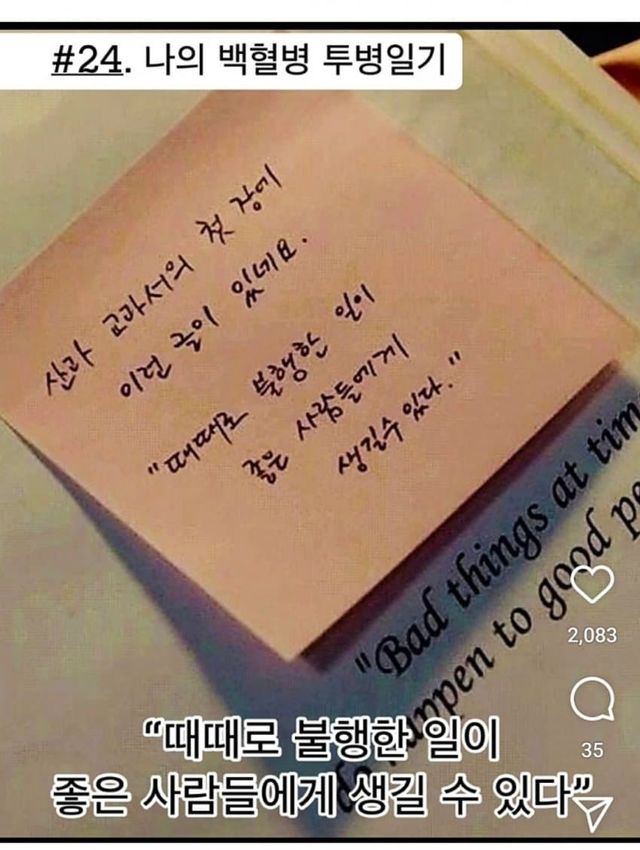 #24. 나의 백혈병 투병일기
산과 교과서의 첫 장에
이런 글이 있네요.
"때때로 불행한 일이
좋은 사람들에게
생길수 있다."
"Bad things at
do happen to good
2,083
35
“때때로 불행한 일이
좋은 사람들에게 생길 수 있다”